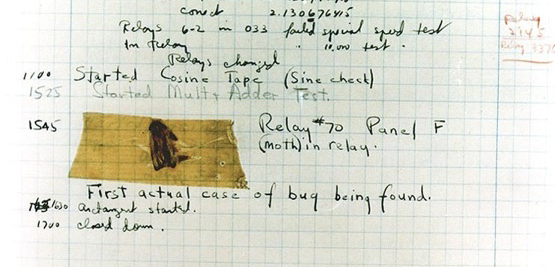 conect 2.130676415
Relays 6-2 in 033 failed special speed test
In Relay " 10,000 test.
Relays changed
1100 Started Cosine Tape (Sine check)
1525 Started Mult+Adder Test.
1545 Relay #70 Panel F
(moth) in relay.
First actual case of bug being found.
1630 antangent started.
1700 closed down.
Relay
2145
Relay 337